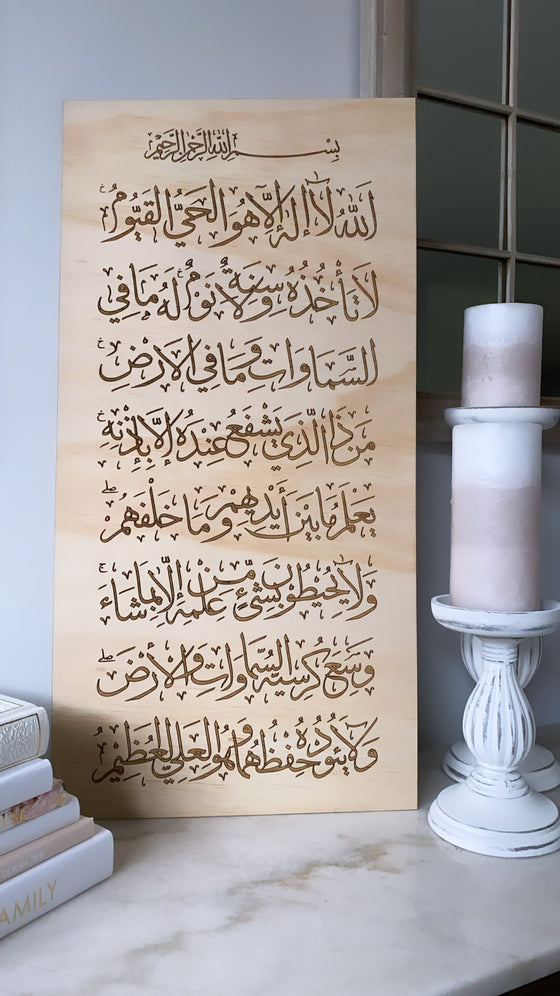 بِسْمِ اللهِ الرَّحْمٰنِ الرَّحِيْمِ
اَللّٰهُ لَآ اِلٰهَ اِلَّا هُوَ الْحَيُّ الْقَيُّوْمُ
لَا تَأْخُذُهُ سِنَةٌ وَلَا نَوْمٌ لَهُ مَا فِي
السَّمَاوَاتِ وَمَا فِي الْاَرْضِ
مَنْ ذَا الَّذِيْ يَشْفَعُ عِنْدَهُ اِلَّا بِاِذْنِهِ
يَعْلَمُ مَا بَيْنَ أَيْدِيْهِمْ وَمَا خَلْفَهُمْ
وَلَا يُحِيْطُوْنَ بِشَيْءٍ مِّنْ عِلْمِهِ اِلَّا بِمَا شَاءَ
وَسِعَ كُرْسِيُّهُ السَّمَاوَاتِ وَالْأَرْضَ
وَلَا يَئُوْدُهُ حِفْظُهُمَا وَهُوَ الْعَلِيُّ الْعَظِيْمُ
AMILY